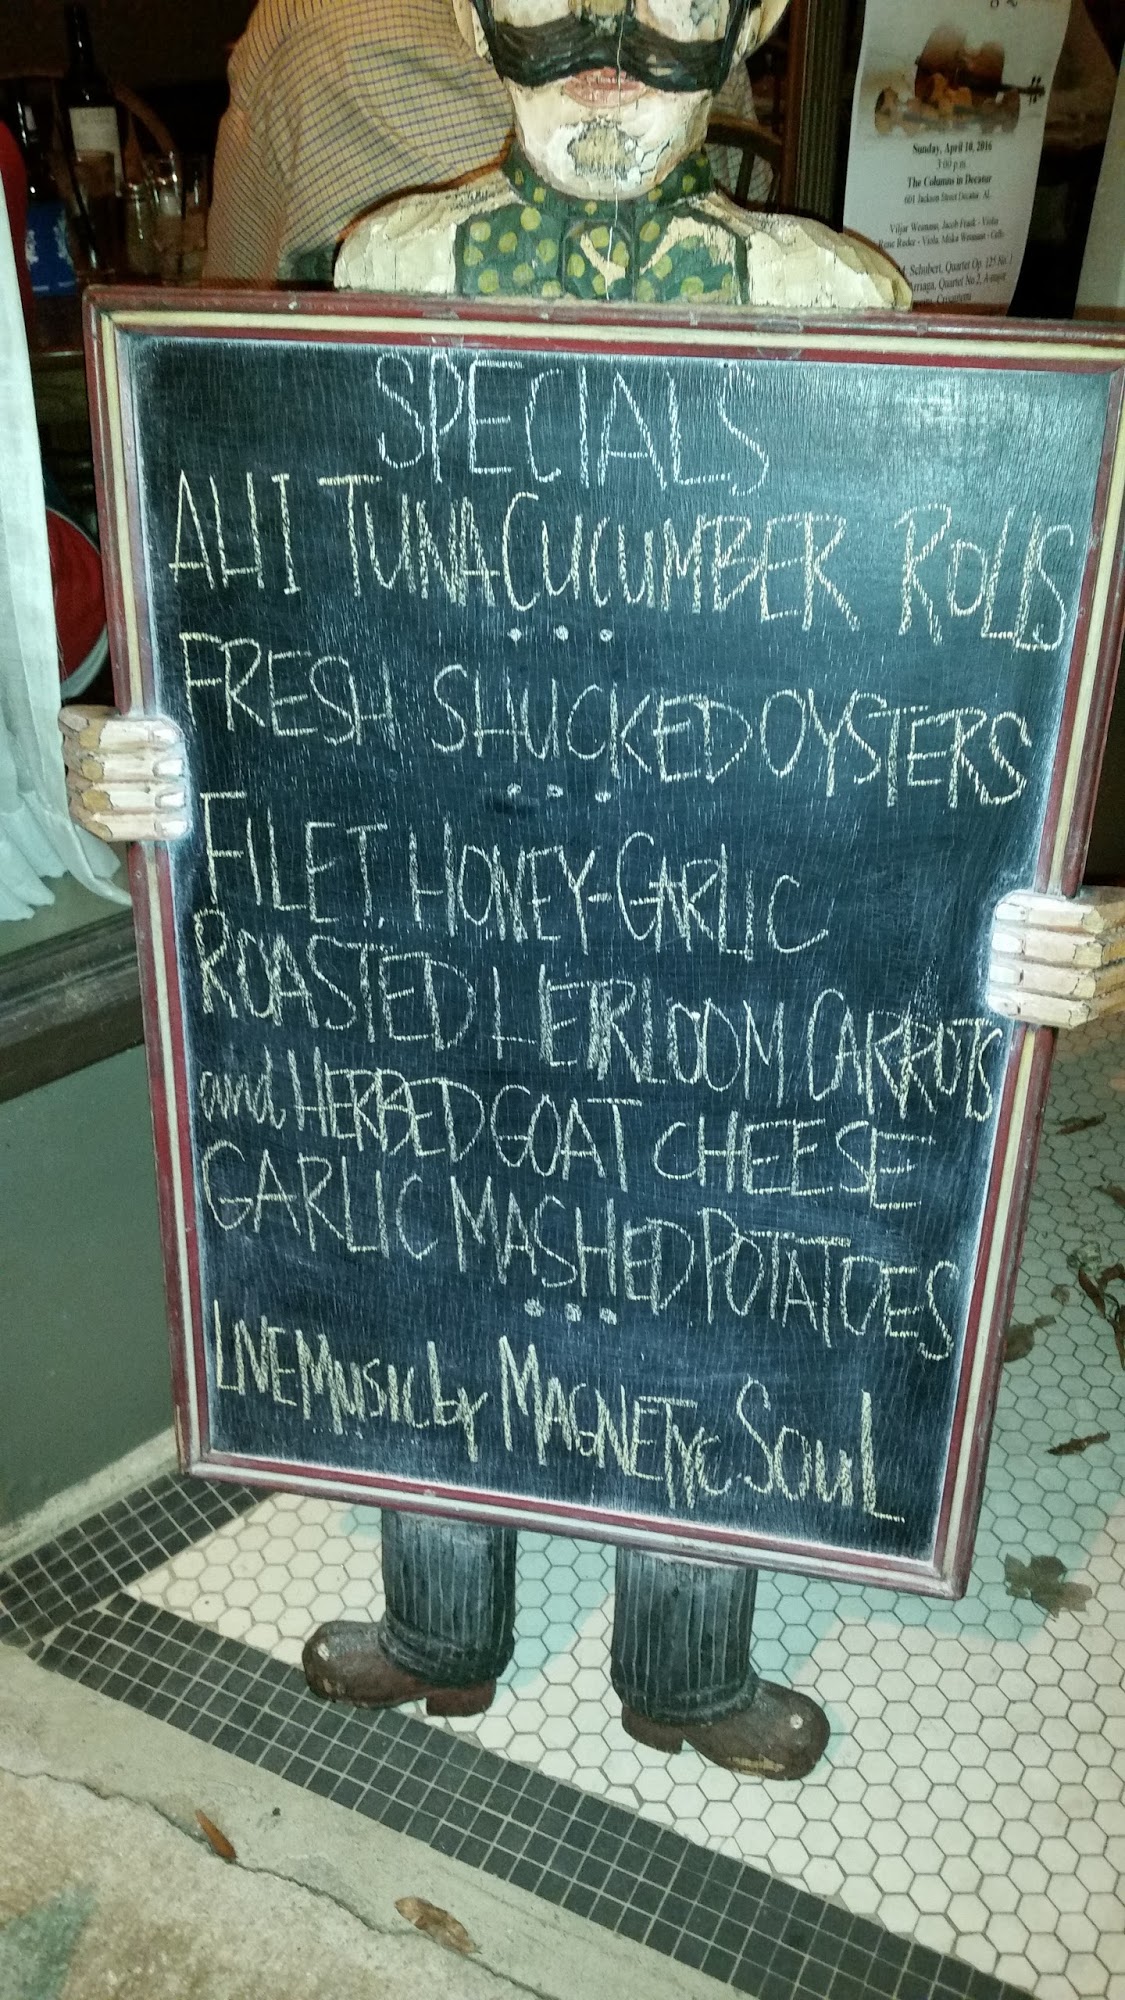 Sunday, April 10, 2016
3:00 p.m.
The Columns in Decatur
601 Jackson Street Decatur AL
Viljar Weimann, Jacob Frank - Violin
Rene Reder - Viola, Miika Weimann - Cello
Schubert, Quartet Op. 125 No. 1
Arriaga, Quartet No 2, A-major
SPECIALS
AHI TUNA CUCUMBER ROLLS
...
FRESH SHUCKED OYSTERS
...
FILET, HONEY-GARLIC
ROASTED HEIRLOOM CARROTS
and HERBED GOAT CHEESE
GARLIC MASHED POTATOES
...
LIVE MUSIC by MAGNETIC SOUL